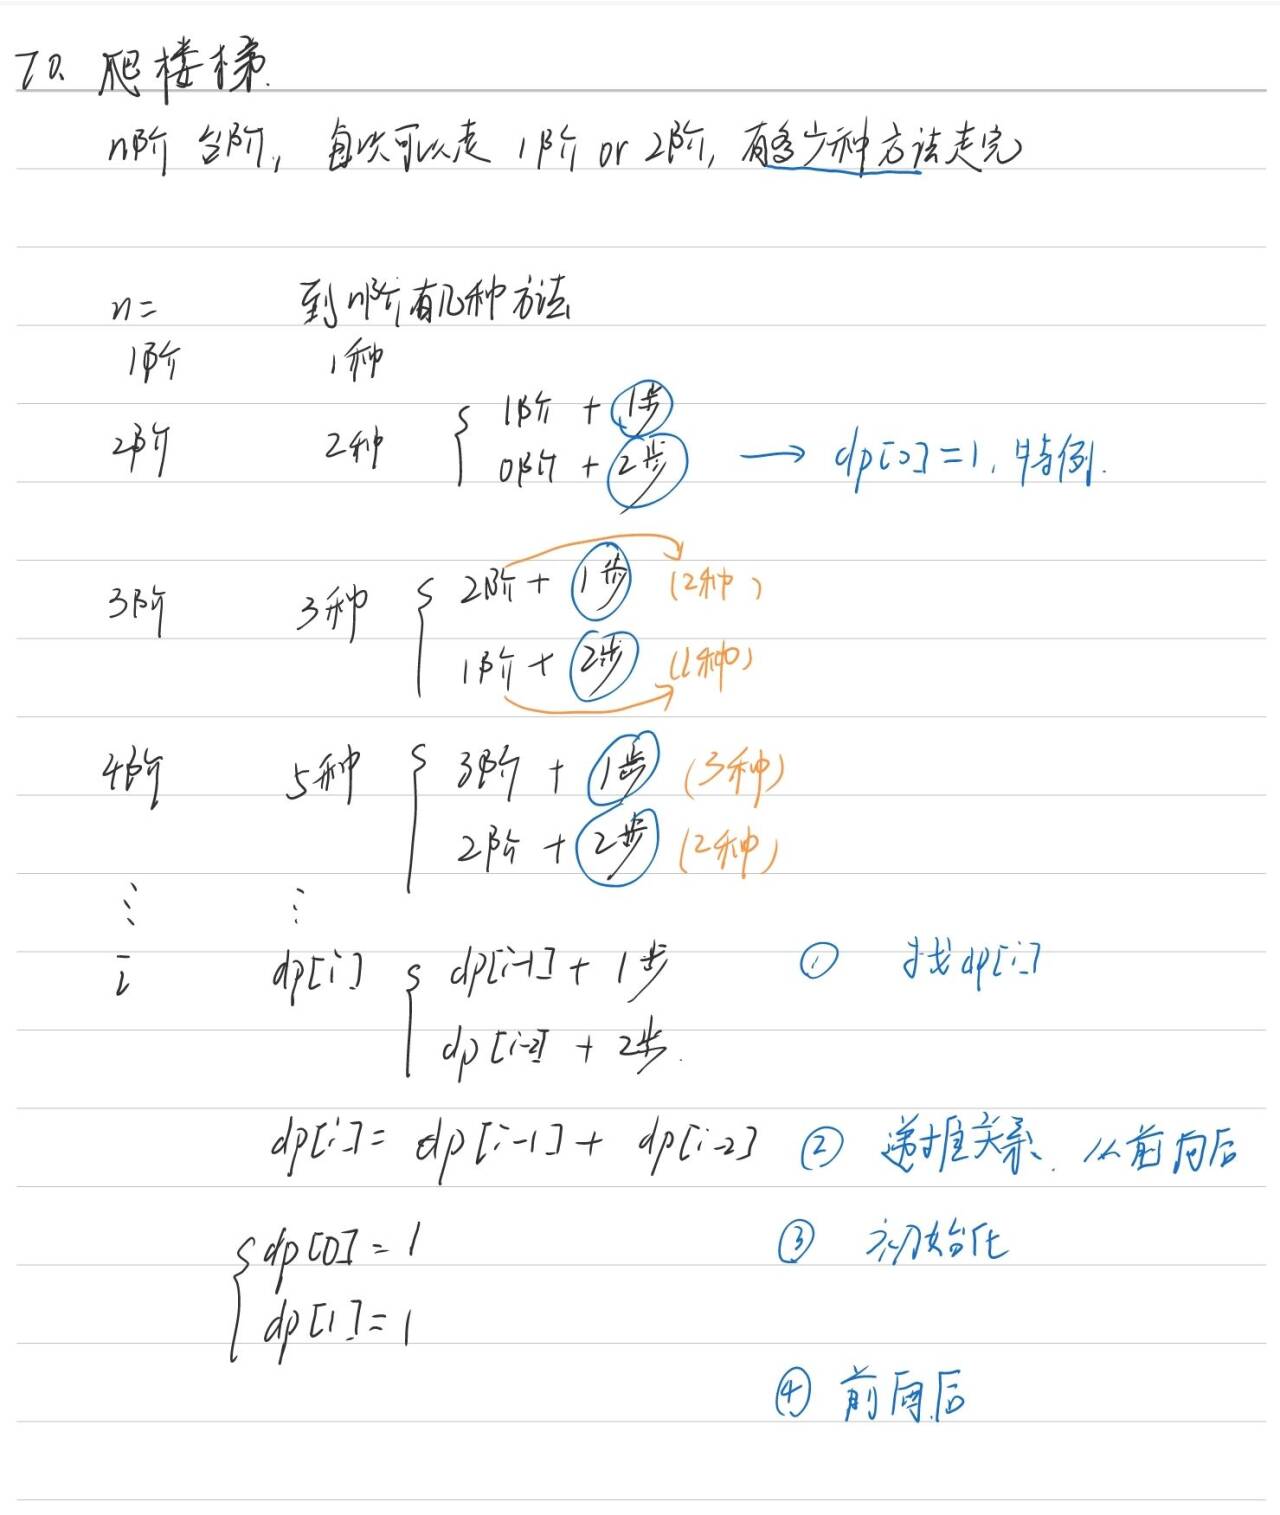 70. 爬楼梯.
n阶 台阶, 每次可以走 1阶 or 2阶, 有多少种方法走完
n= 到n阶有几种方法
1阶 1种
2阶 2种 { 1阶 + 1步
0阶 + 2步 → dp[0]=1, 特例.
3阶 3种 { 2阶 + 1步 (2种)
1阶 + 2步 (1种)
4阶 5种 { 3阶 + 1步 (3种)
2阶 + 2步 (2种)
⋮ ⋮
i dp[i] { dp[i-1] + 1步 ① 找dp[i]
dp[i-2] + 2步.
dp[i] = dp[i-1] + dp[i-2] ② 递推关系. 从前向后
{ dp[0] = 1 ③ 初始化
dp[1] = 1
④ 前向后